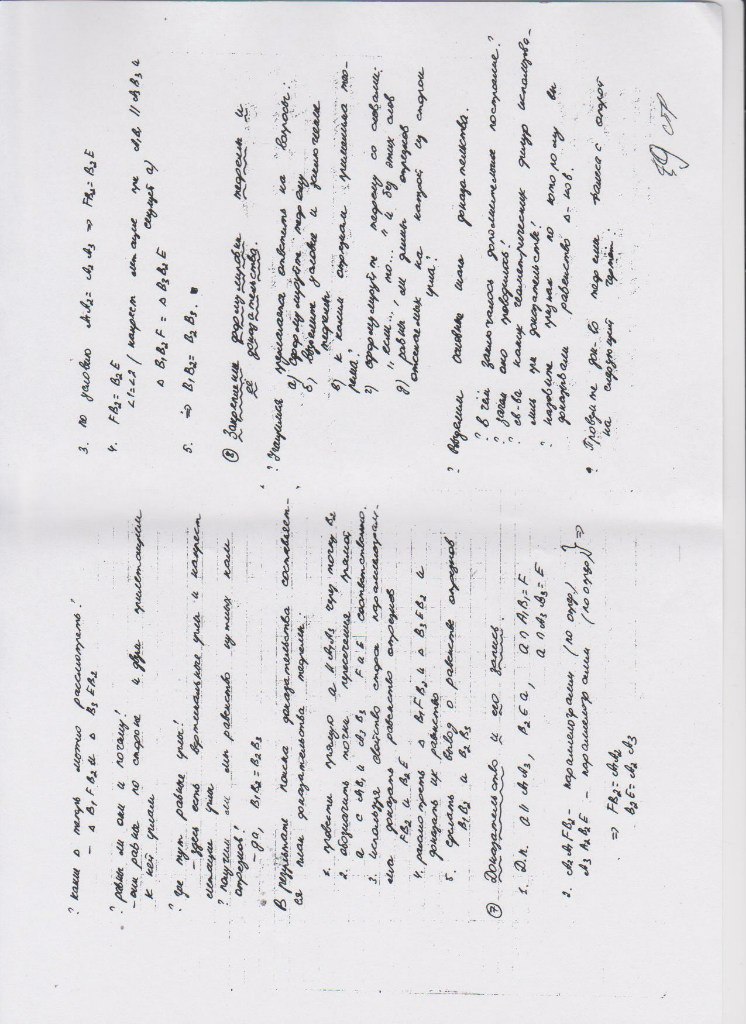 ? какие Δ теперь можно рассмотреть?
– Δ B₁FB₂ и Δ B₃EB₂
? равны ли они и почему?
– они равны по стороне и двум прилежащим
к ней углам
? где тут равные углы?
– здесь есть вертикальные углы и накрест
лежащие углы
? получим ли мы равенство нужных нам
отрезков?
– да, B₁B₂ = B₂B₃
В результате поиска доказательства составляет-
ся план доказательства теоремы:
1. провести прямую a ∥ A₁A₃ через точку B₂
2. обозначить точки пересечения прямой
a с A₁B₁ и A₃B₃ F и E соответственно.
3. используя свойство сторон параллелограм-
ма доказать равенство отрезков
FB₂ и B₂E
4. рассмотреть Δ B₁FB₂ и Δ B₃EB₂ и
доказать их равенство
5. сделать вывод о равенстве отрезков
B₁B₂ и B₂B₃
⑦ Доказательство и его запись
1. Д.п. a ∥ A₁A₃, B₂ ∈ a, a ∩ A₁B₁ = F
a ∩ A₃B₃ = E
2. A₂A₁FB₂ – параллелограмм (по опр.)
A₃A₂B₂E – параллелограмм (по опр.) } ⇒
⇒ FB₂ = A₁A₂
B₂E = A₂A₃
3. по условию A₁A₂ = A₂A₃ ⇒ FB₂ = B₂E
4. FB₂ = B₂E
∠1 = ∠2 (накрест лежащие при A₁B₁ ∥ A₃B₃ и
секущей a)
Δ B₁B₂F = Δ B₃B₂E
5. ⇒ B₁B₂ = B₂B₃.
⑧ Закрепление формулировки теоремы и
её доказательства.
? Учащимся предложено ответить на вопросы:
а) сформулируйте теорему
б) выделите условие и заключение
теоремы
в) к каким отрезкам применима тео-
рема?
г) сформулируйте теорему со словами
"если..., то..." и без этих слов
д) равны ли длины отрезков
отсекаемых на каждой из сторон
угла?
? Выделим основные шаги доказательства.
? в чём заключалось дополнительное построение?
? зачем оно проводилось?
? св-ва каких геометрических фигур использова-
лись при доказательстве?
? назовите признак по которому вы
доказывали равенство Δ-ков.
• Проведите док-во теоремы
на следующий
19 стр